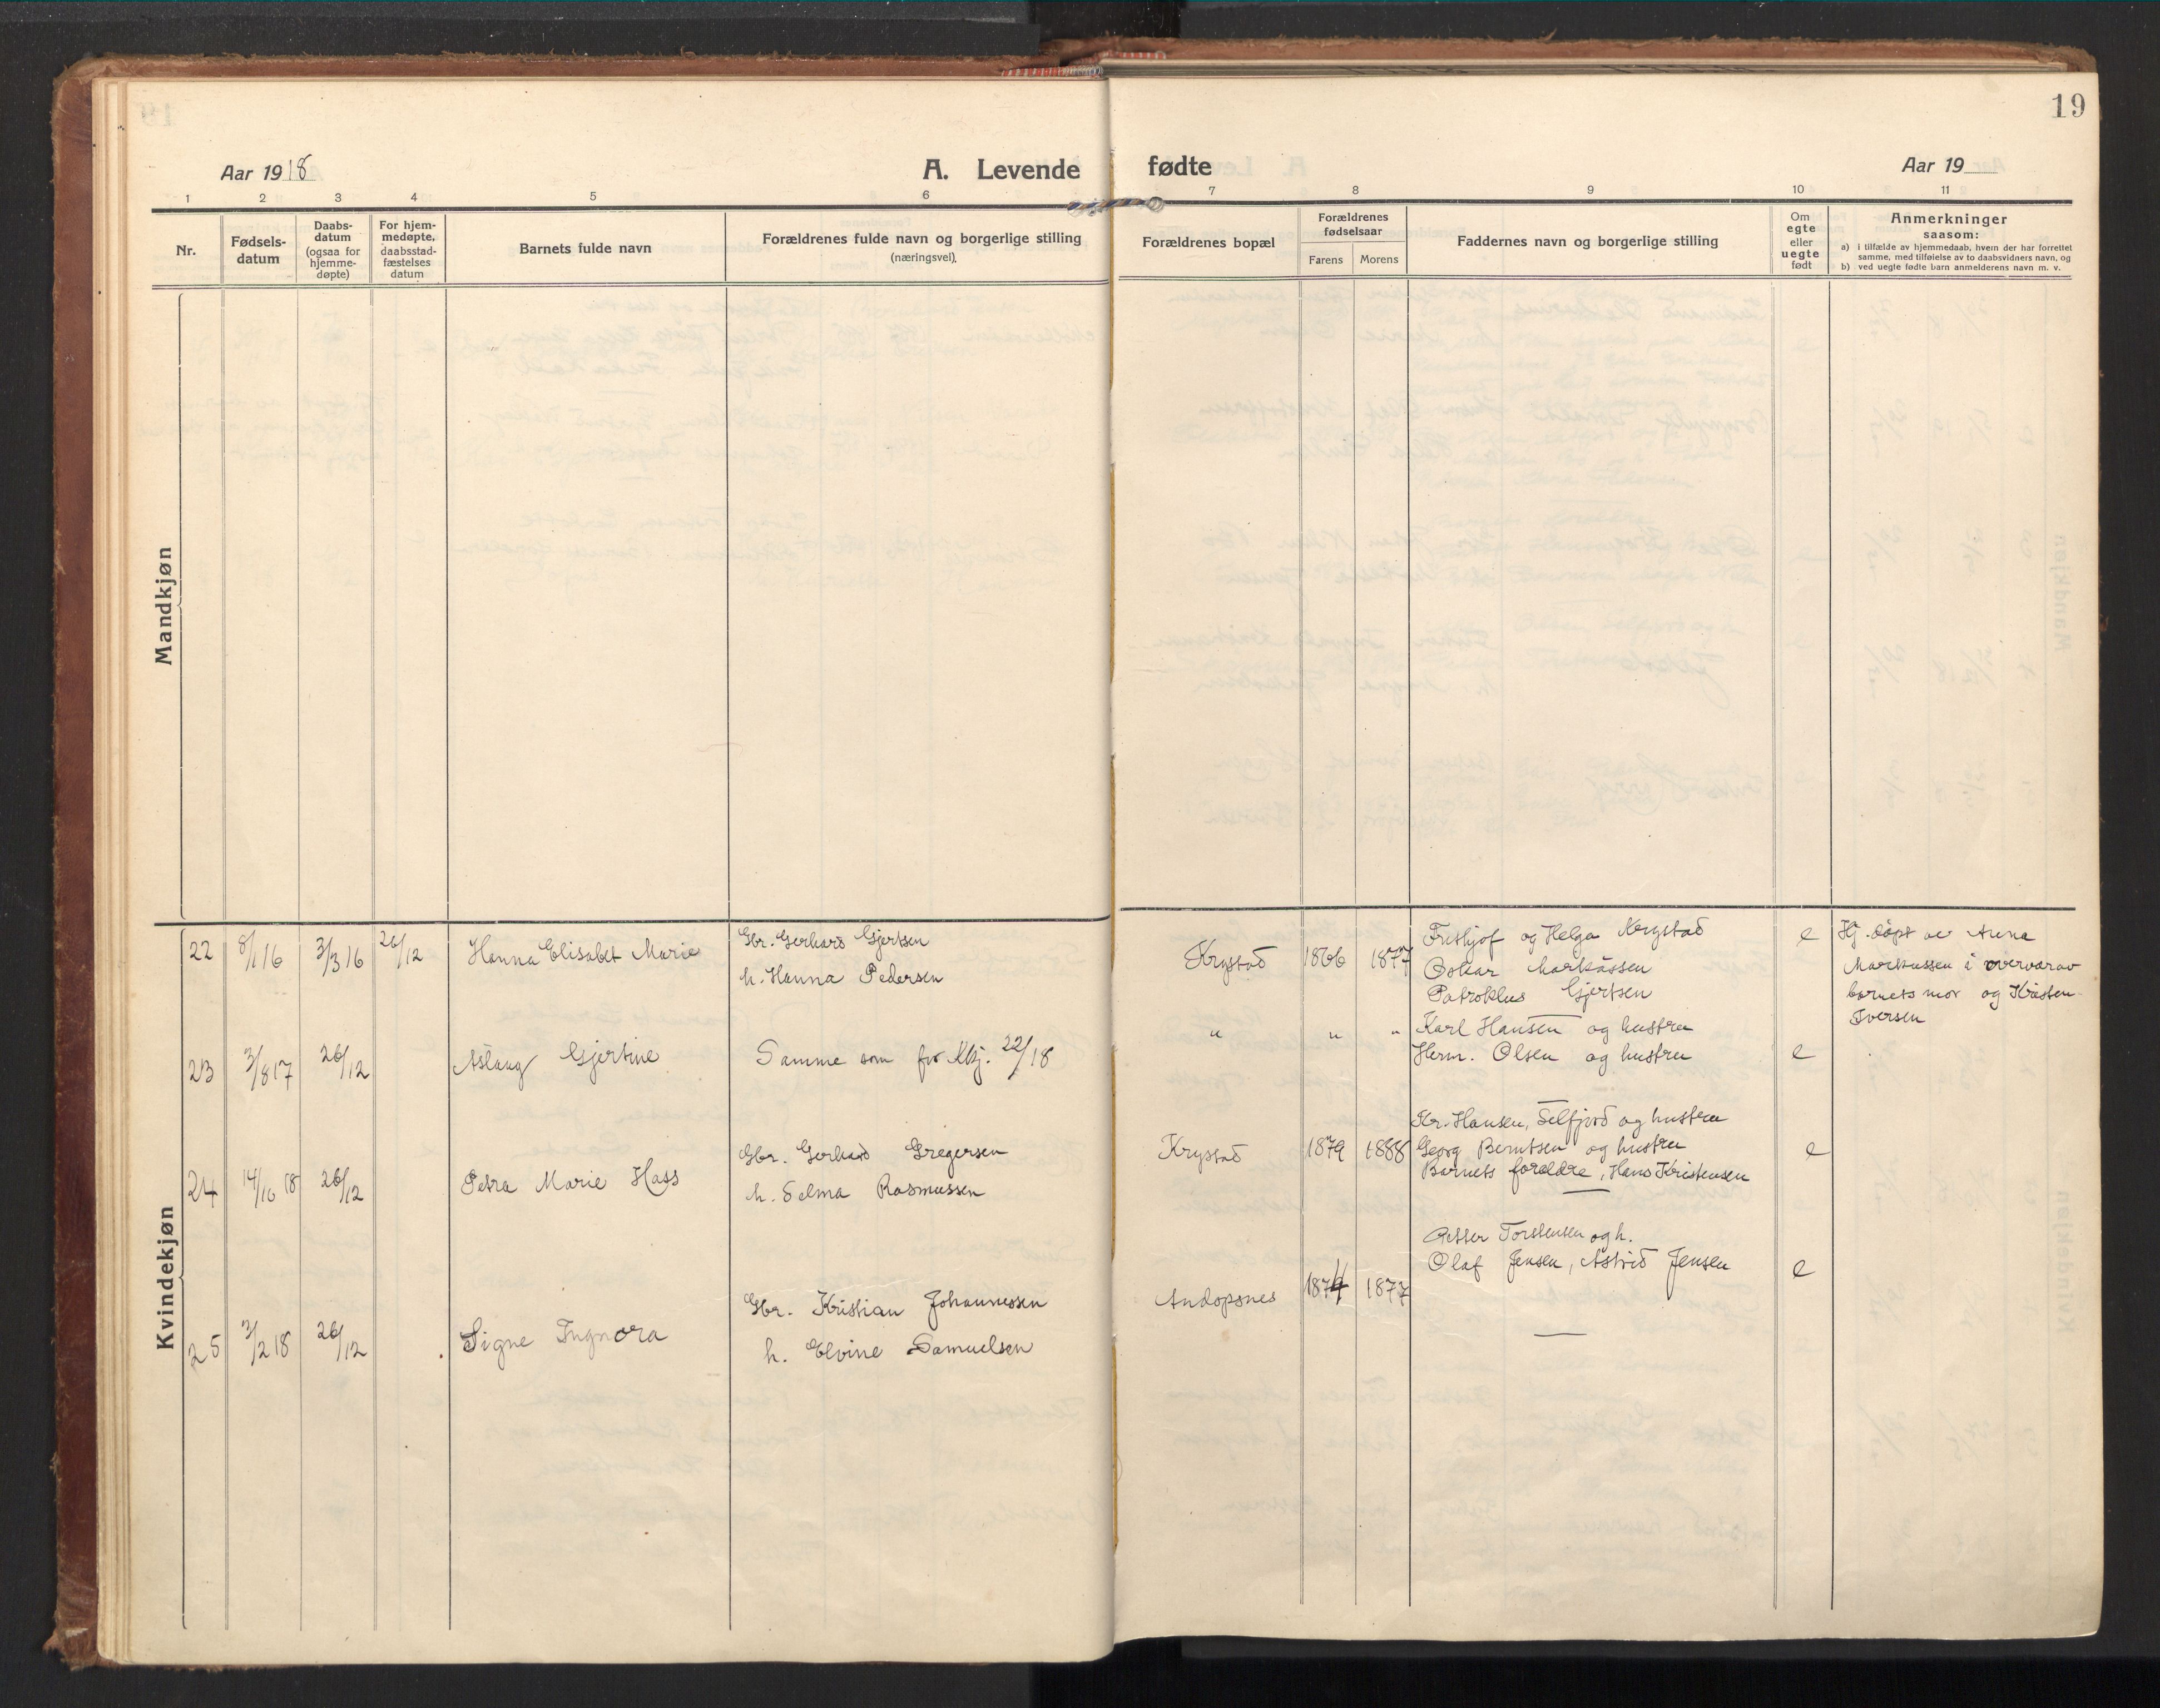 19
Aar 1918
A. Levende fødte
Aar 19
1 2 3 4 5 6 7 8 9 10 11
Nr.
Fødsels-
datum
Daabs-
datum
(ogsaa for
hjemme-
døpte)
For hjem-
medøpte,
daabsstad-
fæstelses
datum
Barnets fulde navn
Forældrenes fulde navn og borgerlige stilling
(næringsvei).
Forældrenes bopæl
Forældrenes
fødselsaar
Farens Morens
Faddernes navn og borgerlige stilling
Om
egte
eller
uegte
født
Anmerkninger
saasom:
a) i tilfælde av hjemmedaab, hvem der har forrettet
samme, med tilføielse av to daabsvidners navn, og
b) ved uegte fødte barn anmelderens navn m. v.
Mandkjøn
Kvindekjøn
22 8/1 16 3/3 16 26/12 Hanna Elisabet Marie
Gbr. Gerhard Gjertsen
h. Hanna Pedersen
Krystad 1866 1877
Frithjof og Helga Krystad
Oskar Markussen
Patroklus Gjertsen
e
Hj. døpt av Anna
Markussen i overvær av
barnets mor og Kristen
Iversen
23 3/8 17 26/12 Aslaug Gjertine
Samme som for Kkj. 22/18
" " "
Karl Hansen og hustru
Herm. Olsen og hustru
e
24 14/10 18 26/12 Petra Marie Hass
Gbr. Gerhard Gregersen
h. Selma Rasmussen
Krystad 1879 1888
Kr. Hansen, Selfjord og hustru
Georg Berntsen og hustru
Barnets foreldre, Hans Kristensen
e
25 3/2 18 26/12 Signe Ingnora
Gbr. Kristian Johannessen
h. Elvine Samuelsen
Andopsnes 1874 1877
Torstensen og h.
Olaf Jensen, Astrid Jensen
e